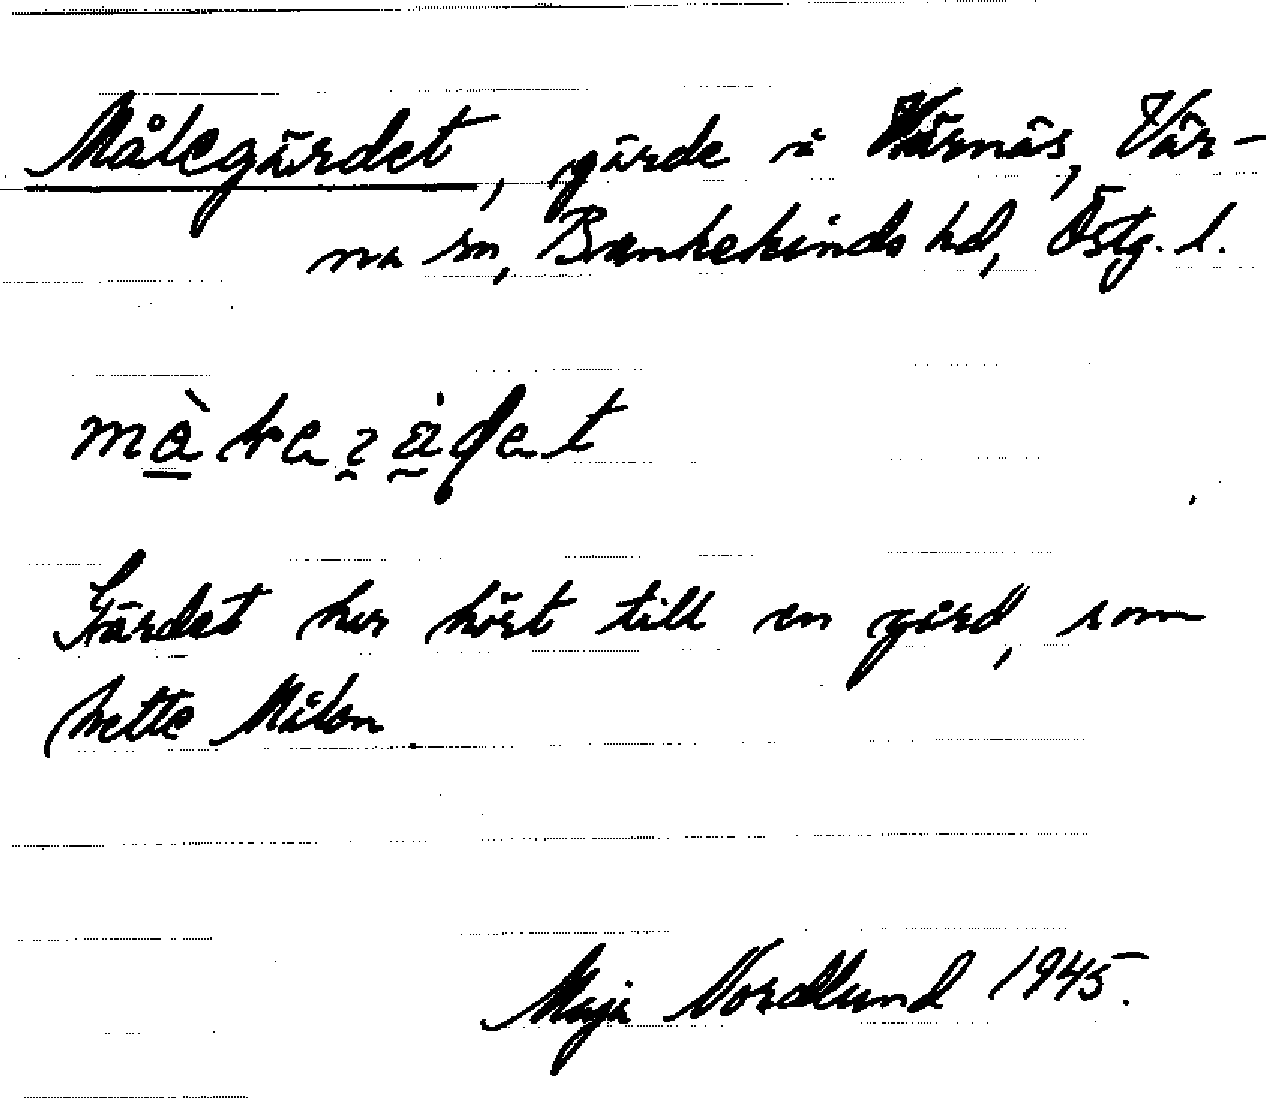 Målegärdet, gärde i Värnäs, Vär-
na sn, Bankekinds hd, Östg. l.
Gärdet har hört till en gård, som
hette Målen
Maja Nordlund 1945.